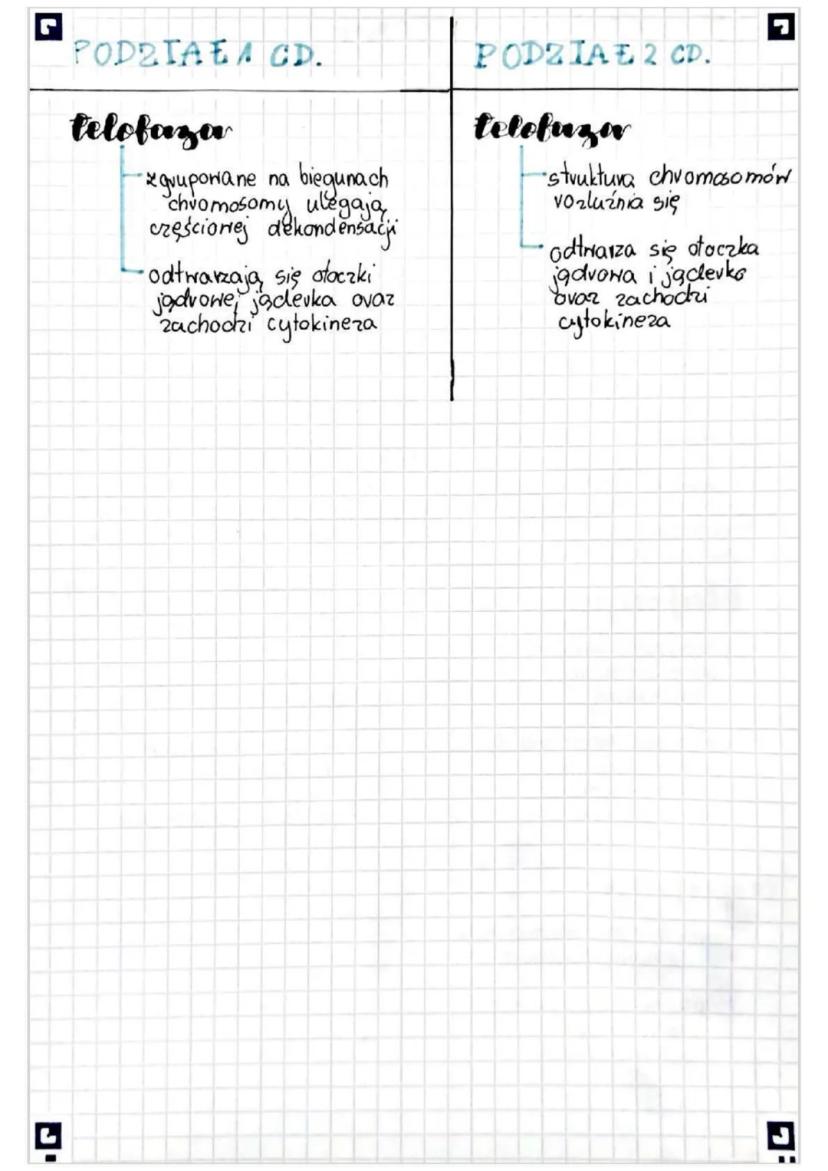 PODZIAŁ 1 CD.
telofaza
zgrupowane na biegunach
chromosomy ulegają
częścionej dekondensacji
odtwarzają się otoczki
jądrowe, jąderka oraz
zachodzi cytokineza
PODZIAŁ 2 CD.
telofaza
struktura chromosomów
rozluźnia się
odtwarza się otoczka
jądrowa i jąderko
oraz zachodzi
cytokineza